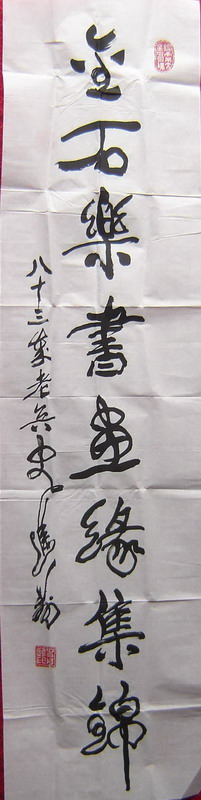 金石樂書画緣集錦
八十三叟老兵史進前